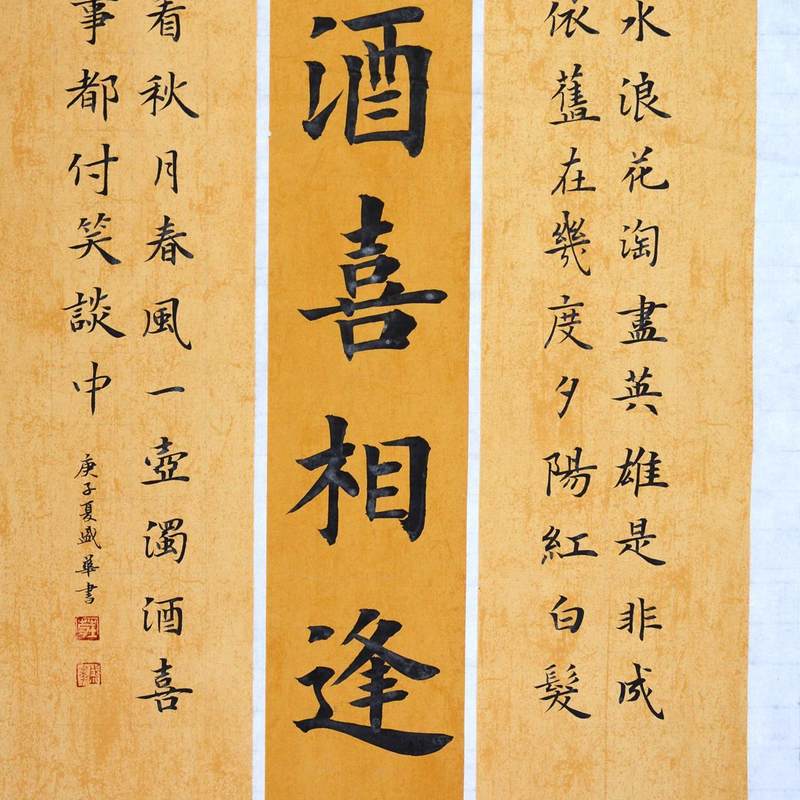 水浪花淘盡英雄是非成
依舊在幾度夕陽紅白髮
酒喜相逢
看秋月春風一壺濁酒喜
事都付笑談中
庚子夏盛華書